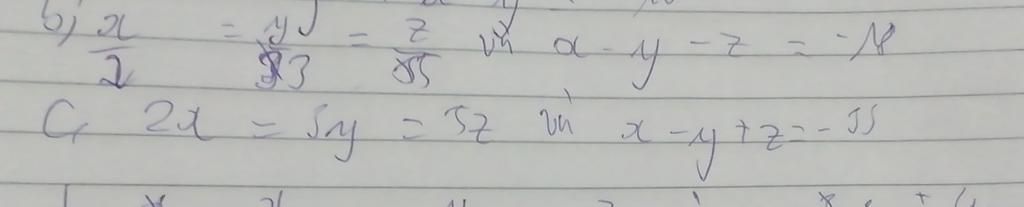 b, x/2 = y/3 = z/5 và x - y - z = -18
C, 2x = 5y = 5z và x - y + z = -55